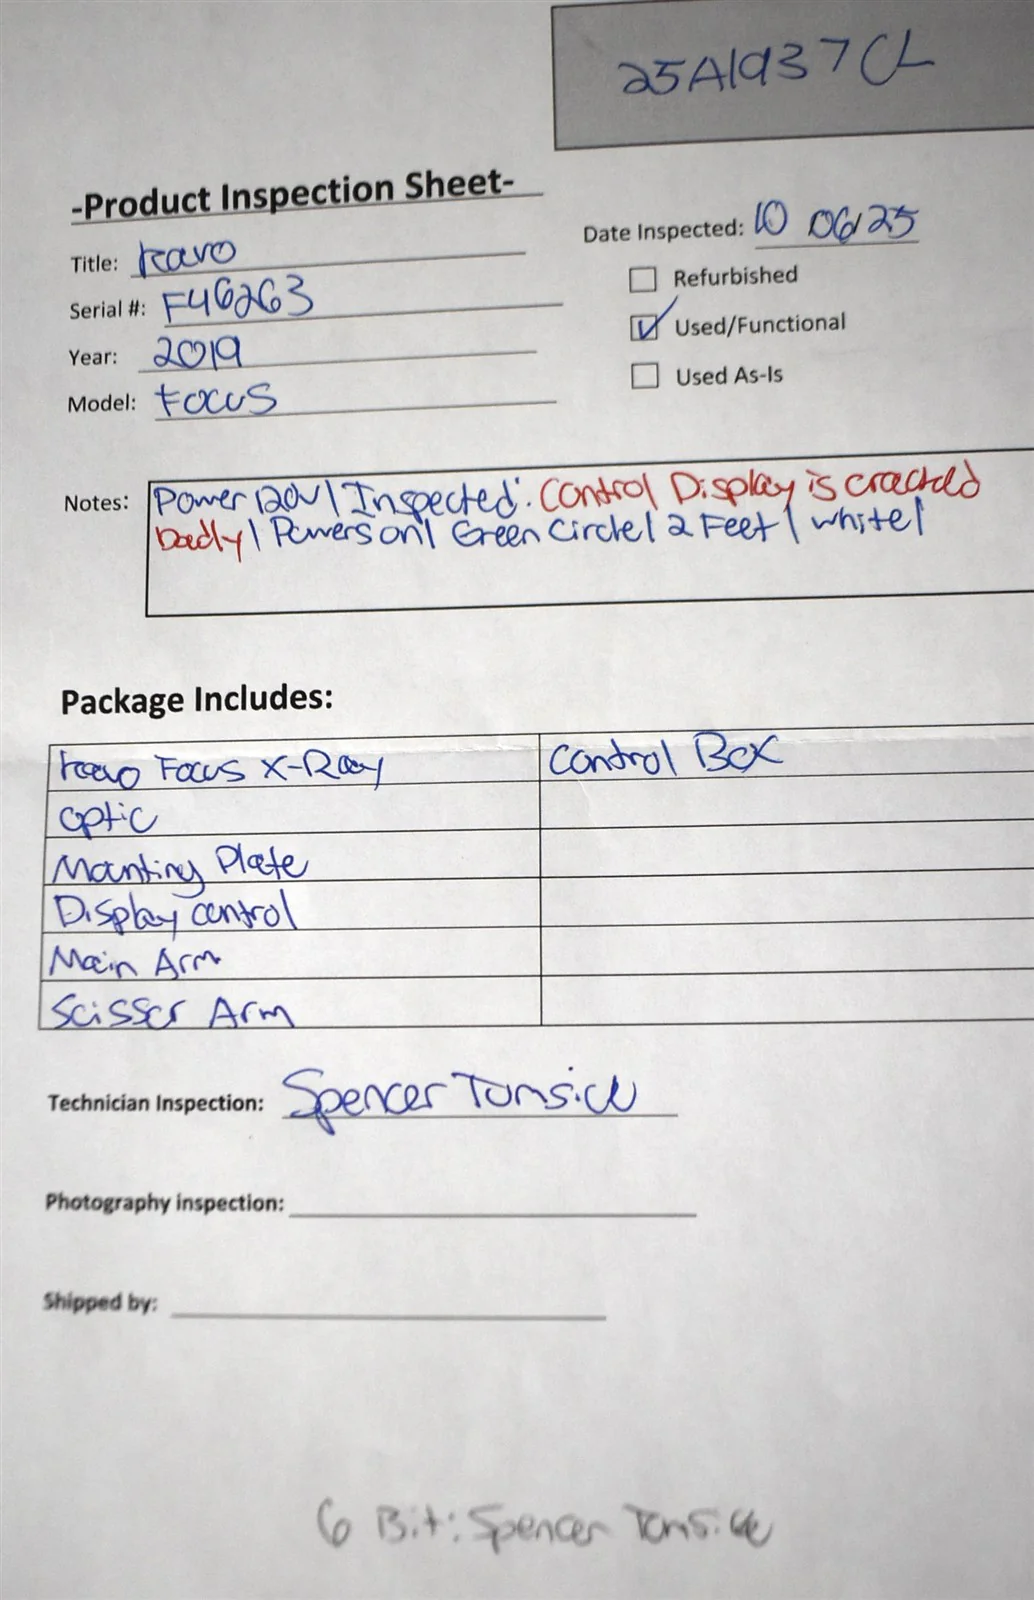 25A1937CL
-Product Inspection Sheet-
Date Inspected: 10 06/25
Title: Kavo
Refurbished
Serial #: F46263
Used/Functional
Year: 2019
Used As-Is
Model: Focus
Notes: Power 120V | Inspected: Control Display is cracked
badly | Powers on | Green Circle | 2 Feet | white |
Package Includes:
Kavo Focus X-Ray Control Box
Optic
Mounting Plate
Display control
Main Arm
Scissor Arm
Technician Inspection: Spencer Tomsick
Photography inspection:
Shipped by:
6 Bit: Spencer Tomsick